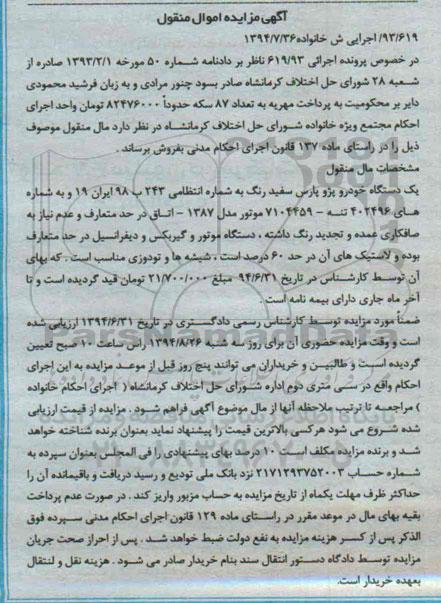 آگهی مزایده اموال منقول
۹۳/۶۱۹/ اجرایی ش خانواده۱۳۹۴/۷/۳۶
در خصوص پرونده اجرائی ۶۱۹/۹۳ ناظر بر دادنامه شماره ۵۰ مورخه ۱۳۹۳/۲/۱ صادره از
شعبه ۲۸ شورای حل اختلاف کرمانشاه صادر بسود چنور مرادی و به زیان فرشید محمودی
دایر بر محکومیت به پرداخت مهریه به تعداد ۸۷ سکه حدوداً ۸۲۴۷۶۰۰۰ تومان واحد اجرای
احکام مجتمع ویژه خانواده شورای حل اختلاف کرمانشاه در نظر دارد مال منقول موصوف
ذیل را در راستای ماده ۱۳۷ قانون اجرای احکام مدنی بفروش برساند .
مشخصات مال منقول
یک دستگاه خودرو پژو پارس سفید رنگ به شماره انتظامی ۲۴۳ ب ۹۸ ایران ۱۹ و به شماره
های ۴۰۲۴۹۶ تنه – ۷۱۰۴۴۵۹ موتور مدل ۱۳۸۷ – اتاق در حد متعارف و عدم نیاز به
صافکاری عمده و تجدید رنگ داشته ، دستگاه موتور و گیربکس و دیفرانسیل در حد متعارف
بوده و لاستیک های آن در حد ۶۰ درصد است ، شیشه ها و تودوزی مناسب است . که بهای
آن توسط کارشناس در تاریخ ۹۴/۶/۳۱ مبلغ ۲۱/۷۰۰/۰۰۰ تومان قید گردیده است و تا
آخر ماه جاری دارای بیمه نامه است .
ضمناً مورد مزایده توسط کارشناس رسمی دادگستری در تاریخ ۱۳۹۴/۶/۳۱ ارزیابی شده
است و وقت مزایده حضوری آن برای روز سه شنبه ۱۳۹۴/۸/۲۶ راس ساعت ۱۰ صبح تعیین
گردیده است و طالبین و خریداران می توانند پنج روز قبل از موعد مزایده به این اجرای
احکام واقع در سی متری دوم اداره شورای حل اختلاف کرمانشاه ( اجرای احکام خانواده
) مراجعه تا ترتیب ملاحظه آنها از مال موضوع آگهی فراهم شود . مزایده از قیمت ارزیابی
شده شروع می شود هرکسی بالاترین قیمت را پیشنهاد نماید بعنوان برنده شناخته خواهد
شد و برنده مزایده مکلف است ۱۰ درصد بهای پیشنهادی را فی المجلس بعنوان سپرده به
شماره حساب ۲۱۷۱۲۹۳۷۵۲۰۰۳ نزد بانک ملی تودیع و رسید دریافت و باقیمانده آن را
حداکثر ظرف مهلت یکماه از تاریخ مزایده به حساب مزبور واریز کند . در صورت عدم پرداخت
بقیه بهای مال در موعد مقرر در راستای ماده ۱۲۹ قانون اجرای احکام مدنی سپرده فوق
الذکر پس از کسر هزینه مزایده به نفع دولت ضبط خواهد شد . پس از احراز صحت جریان
مزایده توسط دادگاه دستور انتقال سند بنام خریدار صادر می شود . هزینه نقل و انتقال
بعهده خریدار است.